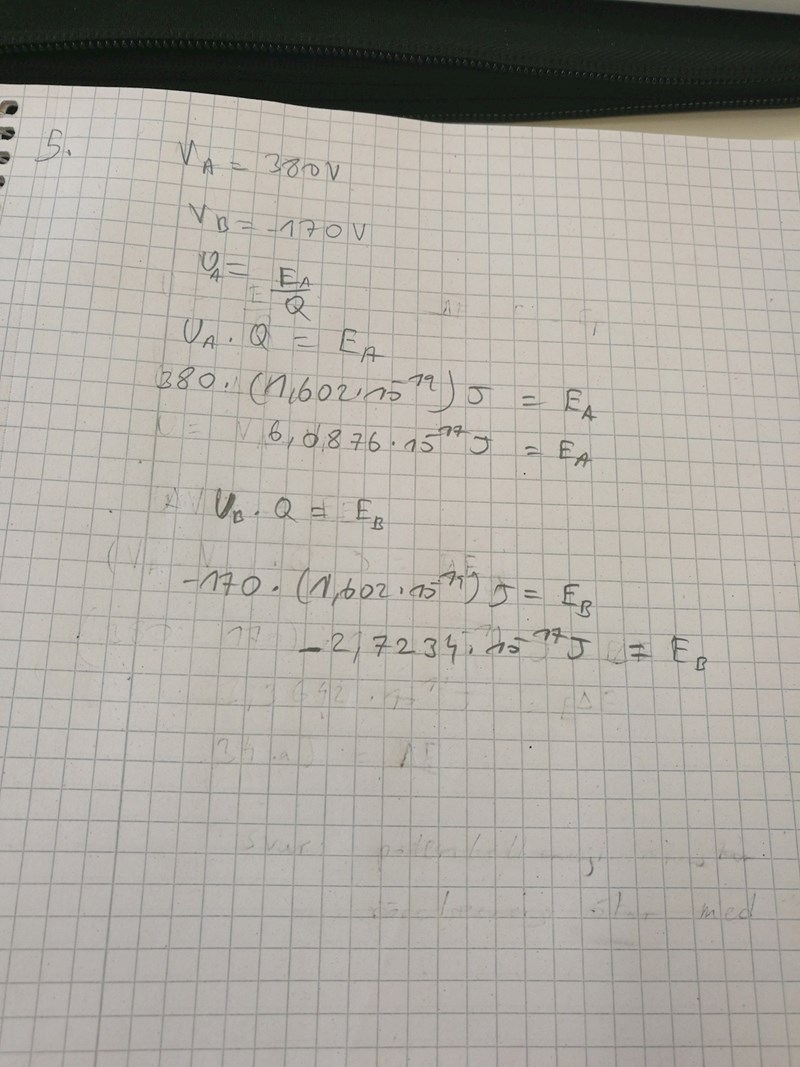 5.
V_A = 380V
V_B = -170V
U_A = E_A / Q
U_A · Q = E_A
380 · (1,602 · 10^-19) J = E_A
6,0876 · 10^-17 J = E_A
U_B · Q = E_B
-170 · (1,602 · 10^-19) J = E_B
-2,7234 · 10^-17 J = E_B
svar:
med